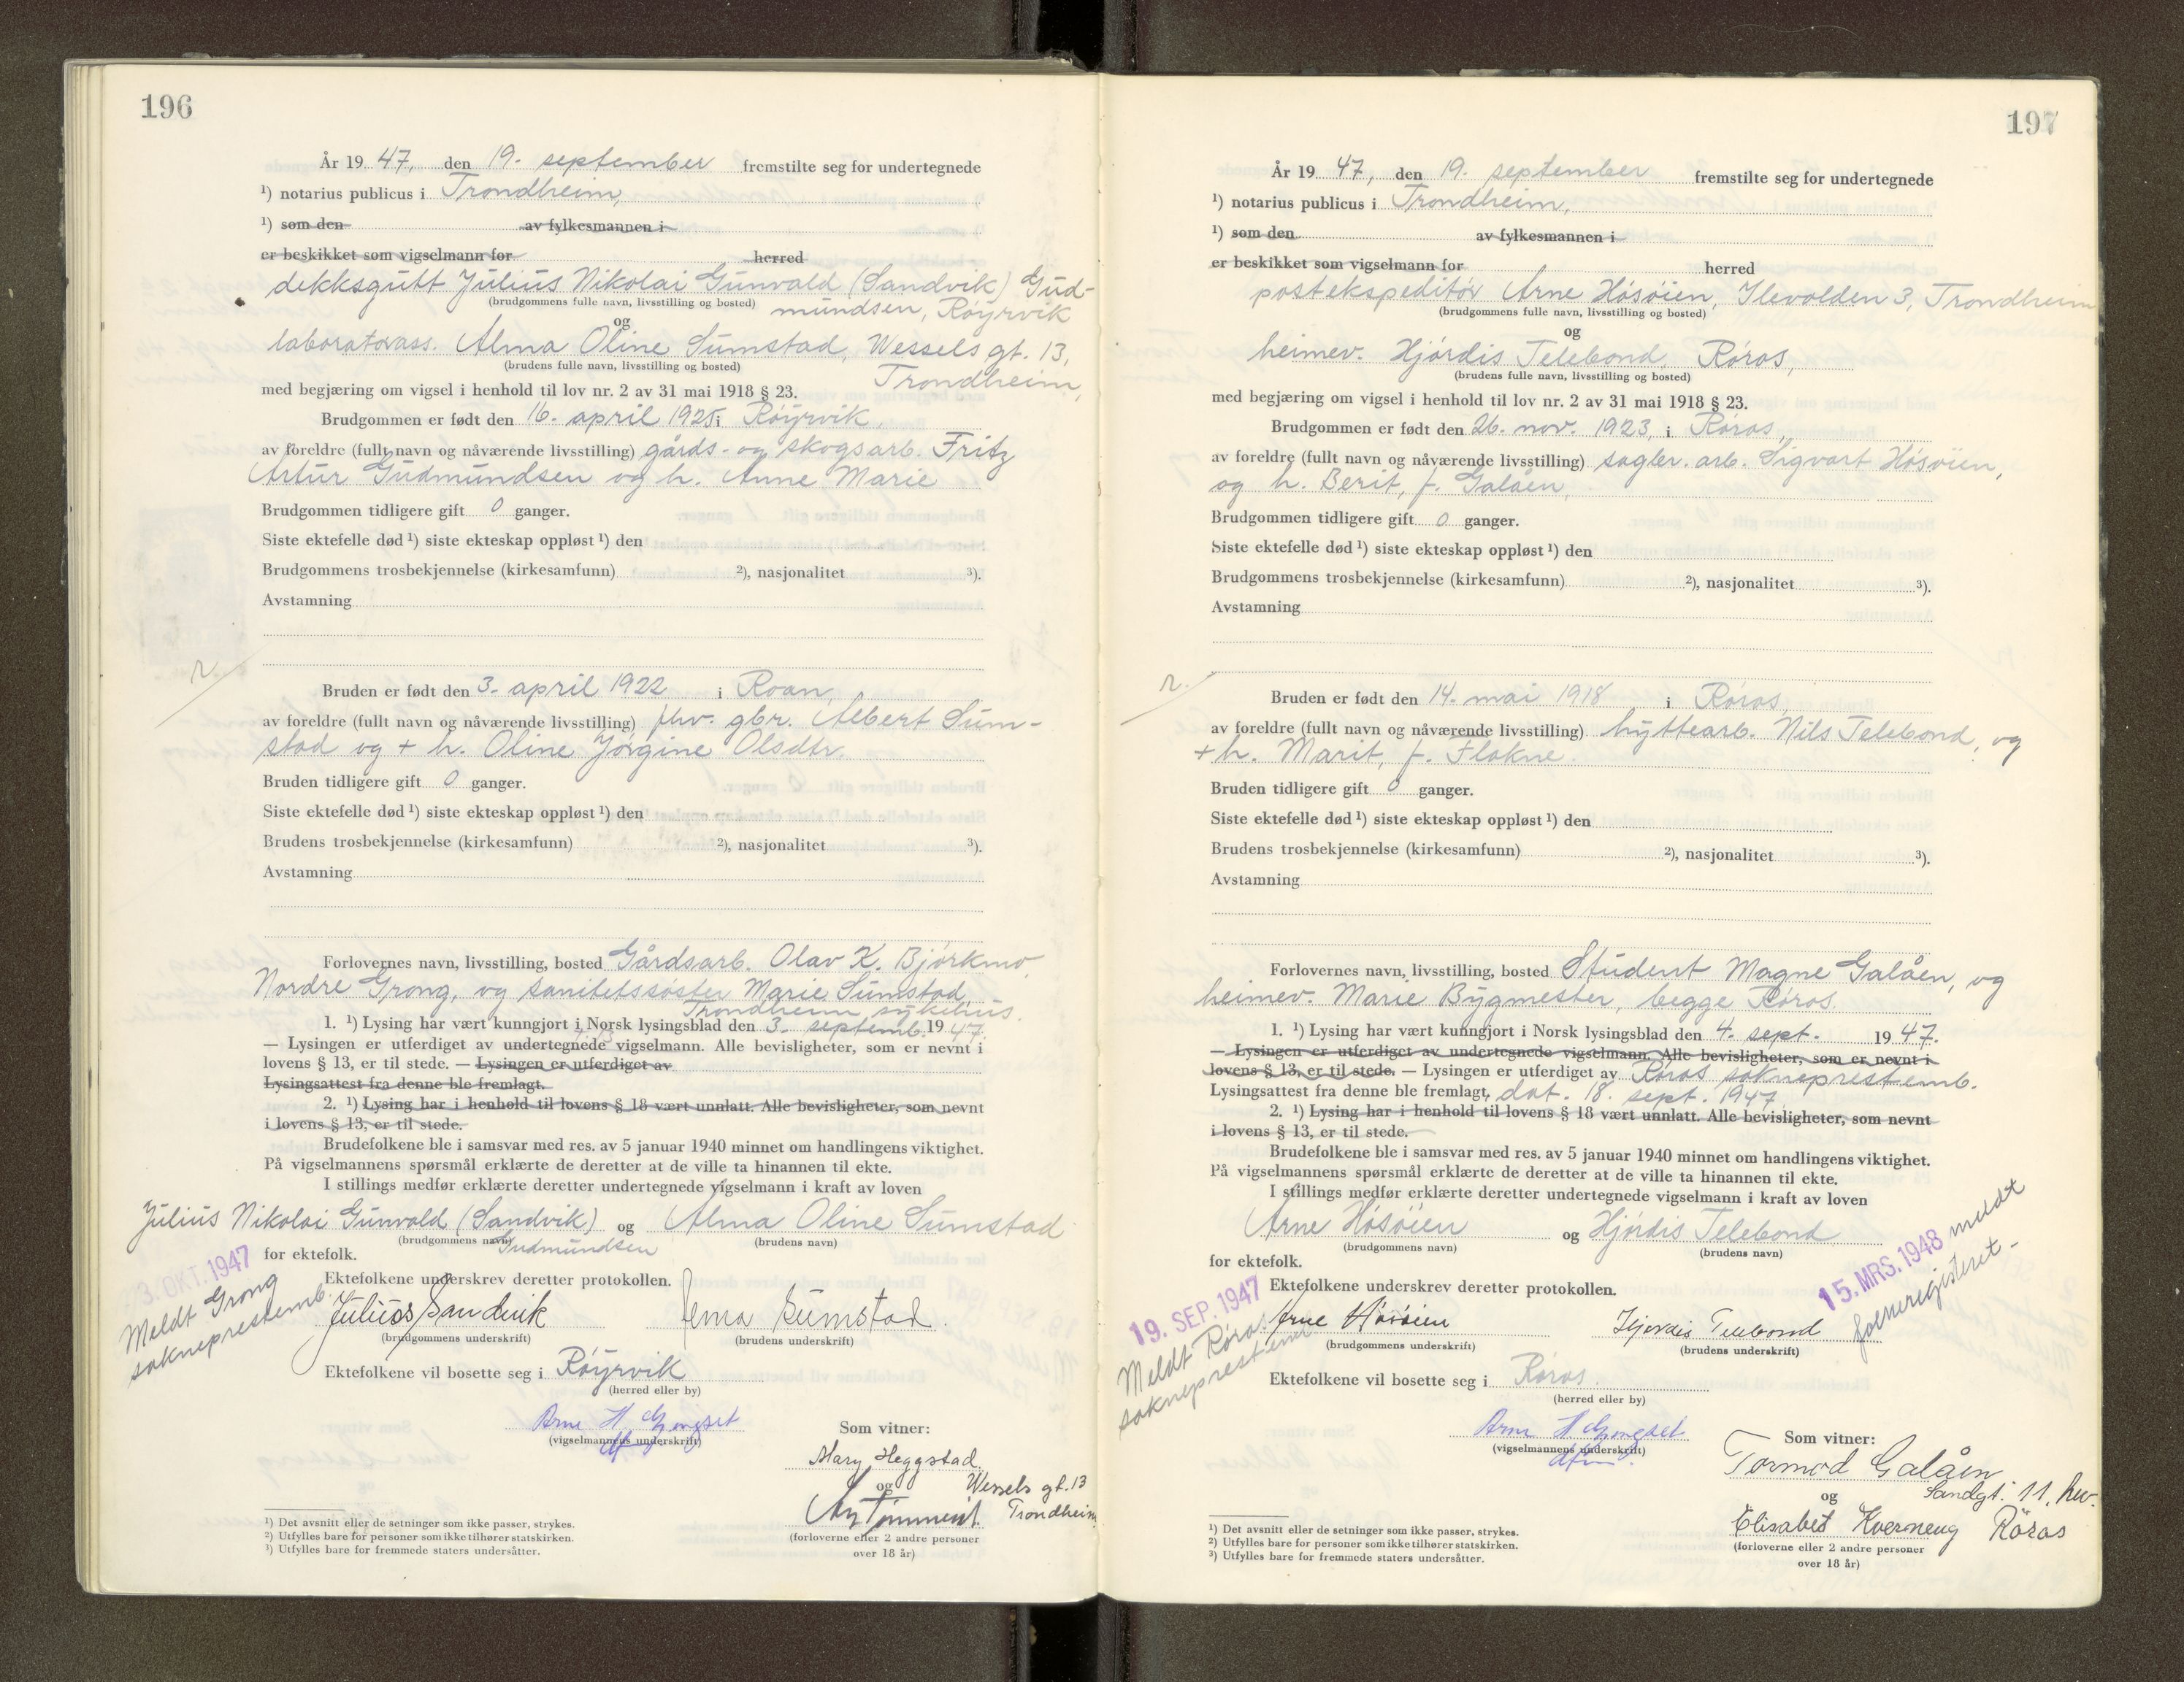 196
År 1947, den 19. september fremstilte seg for undertegnede
¹) notarius publicus i Trondheim,
¹) som den av fylkesmannen i
er beskikket som vigselmann for herred
dekksgutt Julius Nikolai Gunvald (Sandvik) Gud-
(brudgommens fulle navn, livsstilling og bosted) mundsen, Røyrvik
og
laboratorass. Alma Oline Sumstad, Wessels gt. 13,
(brudens fulle navn, livsstilling og bosted) Trondheim,
med begjæring om vigsel i henhold til lov nr. 2 av 31 mai 1918 § 23.
Brudgommen er født den 16. april 1925 i Røyrvik,
av foreldre (fullt navn og nåværende livsstilling) gårds- og skogsarb. Fritz
Artur Gudmundsen og h. Anne Marie
Brudgommen tidligere gift 0 ganger.
Siste ektefelle død ¹) siste ekteskap oppløst ¹) den
Brudgommens trosbekjennelse (kirkesamfunn) ²), nasjonalitet ³).
Avstamning
Bruden er født den 3. april 1922 i Roan,
av foreldre (fullt navn og nåværende livsstilling) fhv. gbr. Albert Sum-
stad og + h. Oline Jørgine Olsdtr.
Bruden tidligere gift 0 ganger.
Siste ektefelle død ¹) siste ekteskap oppløst ¹) den
Brudens trosbekjennelse (kirkesamfunn) ²), nasjonalitet ³).
Avstamning
Forlovernes navn, livsstilling, bosted Gårdsarb. Olav K. Bjørkmo,
Nordre Grong, og sanitetssøster Marie Sumstad,
Trondheim sykehus.
1. ¹) Lysing har vært kunngjort i Norsk lysingsblad den 3. septemb. 1947.
— Lysingen er utferdiget av undertegnede vigselmann. Alle bevisligheter, som er nevnt i
lovens § 13, er til stede. — Lysingen er utferdiget av
Lysingsattest fra denne ble fremlagt.
2. ¹) Lysing har i henhold til lovens § 18 vært unnlatt. Alle bevisligheter, som nevnt
i lovens § 13, er til stede.
Brudefolkene ble i samsvar med res. av 5 januar 1940 minnet om handlingens viktighet.
På vigselmannens spørsmål erklærte de deretter at de ville ta hinannen til ekte.
I stillings medfør erklærte deretter undertegnede vigselmann i kraft av loven
Julius Nikolai Gunvald (Sandvik) og Alma Oline Sumstad
(brudgommens navn) Gudmundsen (brudens navn)
for ektefolk.
3. OKT. 1947
Meldt Grong
sokneprestemb.
Ektefolkene underskrev deretter protokollen.
Julius Sandvik Alma Sumstad.
(brudgommens underskrift) (brudens underskrift)
Ektefolkene vil bosette seg i Røyrvik
(herred eller by)
Arne H.
(vigselmannens underskrift)
Som vitner:
Mary Heggstad
og Wessels gt. 13
Trondheim
(forloverne eller 2 andre personer
over 18 år)
¹) Det avsnitt eller de setninger som ikke passer, strykes.
²) Utfylles bare for personer som ikke tilhører statskirken.
³) Utfylles bare for fremmede staters undersåtter.
197
År 1947, den 19. september fremstilte seg for undertegnede
¹) notarius publicus i Trondheim,
¹) som den av fylkesmannen i
er beskikket som vigselmann for herred
postekspeditør Arne Høsøien, Ilevolden 3, Trondheim
(brudgommens fulle navn, livsstilling og bosted)
og
heimev. Hjørdis Telebond, Røros,
(brudens fulle navn, livsstilling og bosted)
med begjæring om vigsel i henhold til lov nr. 2 av 31 mai 1918 § 23.
Brudgommen er født den 26. nov. 1923, i Røros,
av foreldre (fullt navn og nåværende livsstilling) sagbr. arb. Sigvart Høsøien,
og h. Berit, f. Galåen,
Brudgommen tidligere gift 0 ganger.
Siste ektefelle død ¹) siste ekteskap oppløst ¹) den
Brudgommens trosbekjennelse (kirkesamfunn) ²), nasjonalitet ³).
Avstamning
Bruden er født den 14. mai 1918 i Røros,
av foreldre (fullt navn og nåværende livsstilling) hyttearb. Nils Telebond, og
+ h. Marit, f. Flokne.
Bruden tidligere gift 0 ganger.
Siste ektefelle død ¹) siste ekteskap oppløst ¹) den
Brudens trosbekjennelse (kirkesamfunn) ²), nasjonalitet ³).
Avstamning
Forlovernes navn, livsstilling, bosted Student Magne Galåen, og
heimev. Marie Bygmester, begge Røros.
1. ¹) Lysing har vært kunngjort i Norsk lysingsblad den 4. sept. 1947.
— Lysingen er utferdiget av undertegnede vigselmann. Alle bevisligheter, som er nevnt i
lovens § 13, er til stede. — Lysingen er utferdiget av Røros sokneprestemb.
Lysingsattest fra denne ble fremlagt, dat. 18. sept. 1947
2. ¹) Lysing har i henhold til lovens § 18 vært unnlatt. Alle bevisligheter, som nevnt
i lovens § 13, er til stede.
Brudefolkene ble i samsvar med res. av 5 januar 1940 minnet om handlingens viktighet.
På vigselmannens spørsmål erklærte de deretter at de ville ta hinannen til ekte.
I stillings medfør erklærte deretter undertegnede vigselmann i kraft av loven
Arne Høsøien og Hjørdis Telebond
(brudgommens navn) (brudens navn)
for ektefolk.
15. MRS. 1948 meldt
folkeregisteret -
19. SEP. 1947
Meldt Røros
sokneprestemb.
Ektefolkene underskrev deretter protokollen.
Arne Høsøien Hjørdis Telebond
(brudgommens underskrift) (brudens underskrift)
Ektefolkene vil bosette seg i Røros.
(herred eller by)
Arne H.
(vigselmannens underskrift)
Som vitner:
Tormod Galåen
og Sandgt. 11, hev.
Elisabet Kverneng Røros
(forloverne eller 2 andre personer
over 18 år)
¹) Det avsnitt eller de setninger som ikke passer, strykes.
²) Utfylles bare for personer som ikke tilhører statskirken.
³) Utfylles bare for fremmede staters undersåtter.